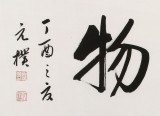 物
丁酉之夏
元樸